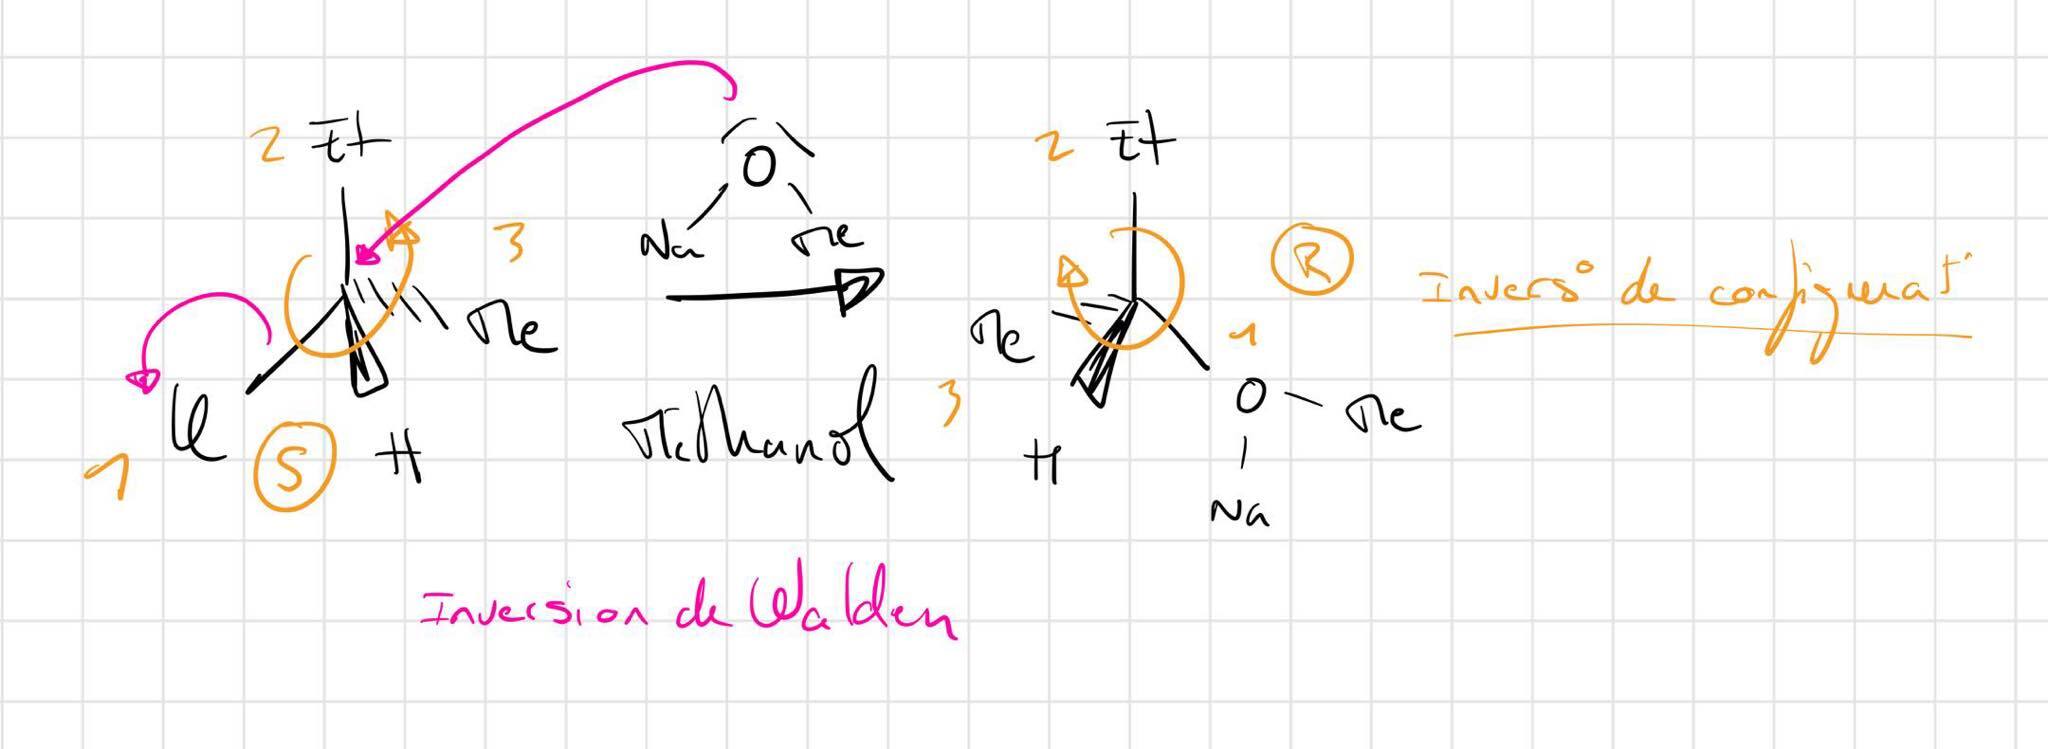 2 Et
2 Et
O
3
Na Me
R
Invers° de configurat°
Me
Me
1
Cl
3
O
Me
1
S
H
Méthanol
H
Na
Inversion de Walden